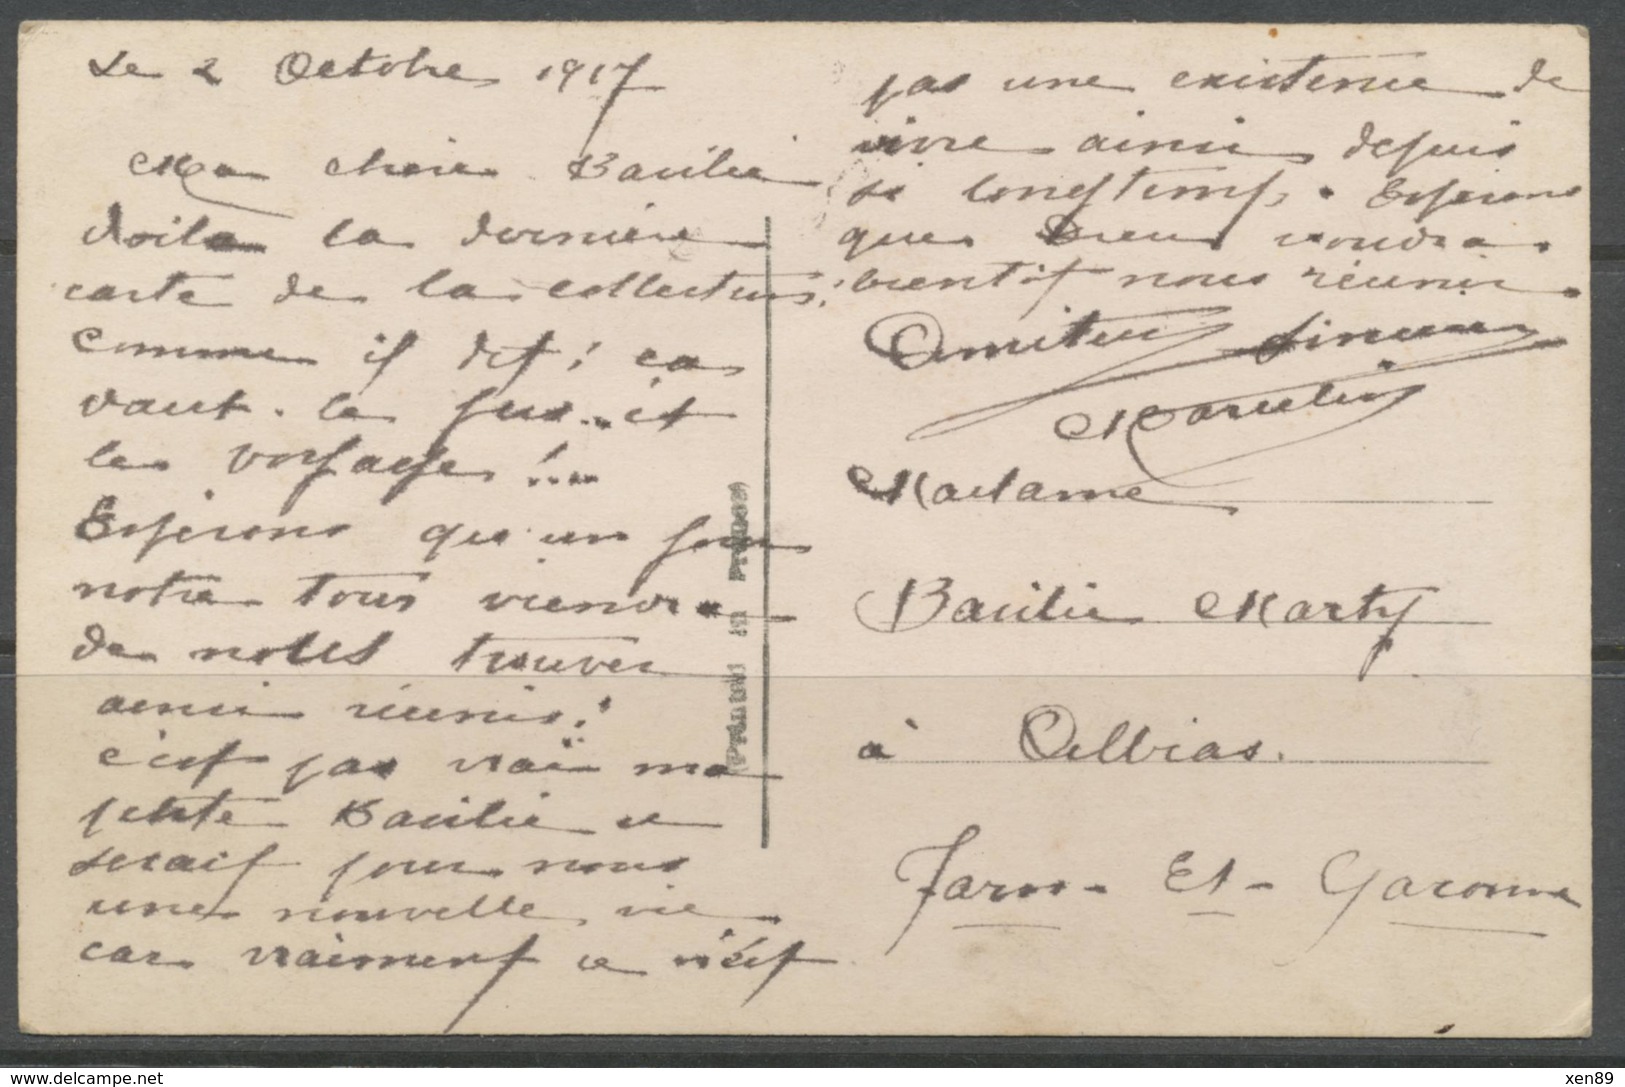 Le 2 Octobre 1917
Ma chère Basilie
Voila la dernière
carte de la collection;
Comme il dit; ca
vaut. le jus.. et
les voyages !...
Espérons qu'un jour
notre tour viendra
de nous trouver
ainsi réunis!
c'est pas vrai ma
petite Basilie ce
serait pour nous
une nouvelle vie
car vraiment ce n'est
pas une existence de
vivre ainsi depuis
si longtemps. Espérons
que Dieu voudra
bientot nous réunir.
Amities sincères
Marcelin
Madame
Basilie Marty
à Albias.
Tarn - Et - Garonne
(Printed in France)
xen89